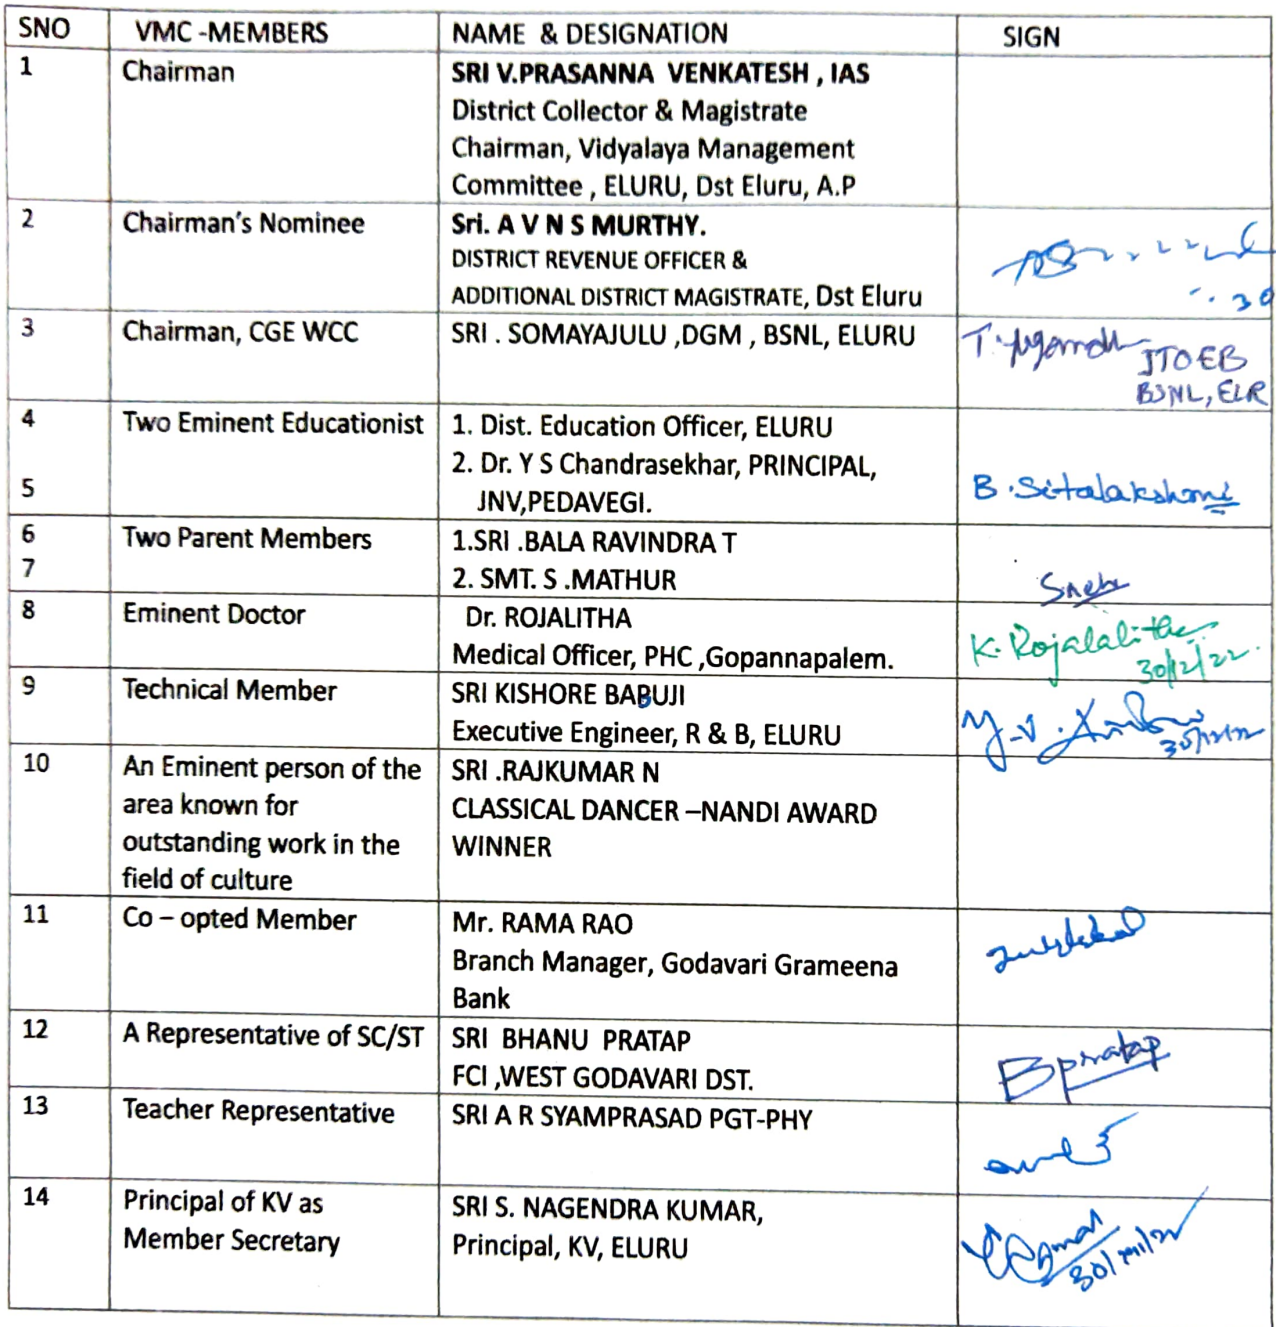 SNO VMC -MEMBERS NAME & DESIGNATION SIGN
1 Chairman SRI V.PRASANNA VENKATESH , IAS
District Collector & Magistrate
Chairman, Vidyalaya Management
Committee , ELURU, Dst Eluru, A.P
2 Chairman's Nominee Sri. A V N S MURTHY.
DISTRICT REVENUE OFFICER &
ADDITIONAL DISTRICT MAGISTRATE, Dst Eluru
30
3 Chairman, CGE WCC SRI . SOMAYAJULU ,DGM , BSNL, ELURU
T. JTOEB
BSNL, ELR
4 Two Eminent Educationist 1. Dist. Education Officer, ELURU
2. Dr. Y S Chandrasekhar, PRINCIPAL,
5 JNV,PEDAVEGI. B. Sitalakshmi
6 Two Parent Members 1.SRI .BALA RAVINDRA T
7 2. SMT. S .MATHUR
8 Eminent Doctor Dr. ROJALITHA K. Rojalalitha
Medical Officer, PHC ,Gopannapalem. 30/12/22
9 Technical Member SRI KISHORE BABUJI
Executive Engineer, R & B, ELURU Y.V. 30/12/22
10 An Eminent person of the SRI .RAJKUMAR N
area known for CLASSICAL DANCER –NANDI AWARD
outstanding work in the WINNER
field of culture
11 Co – opted Member Mr. RAMA RAO
Branch Manager, Godavari Grameena
Bank
12 A Representative of SC/ST SRI BHANU PRATAP Bpratap
FCI ,WEST GODAVARI DST.
13 Teacher Representative SRI A R SYAMPRASAD PGT-PHY
14 Principal of KV as SRI S. NAGENDRA KUMAR,
Member Secretary Principal, KV, ELURU